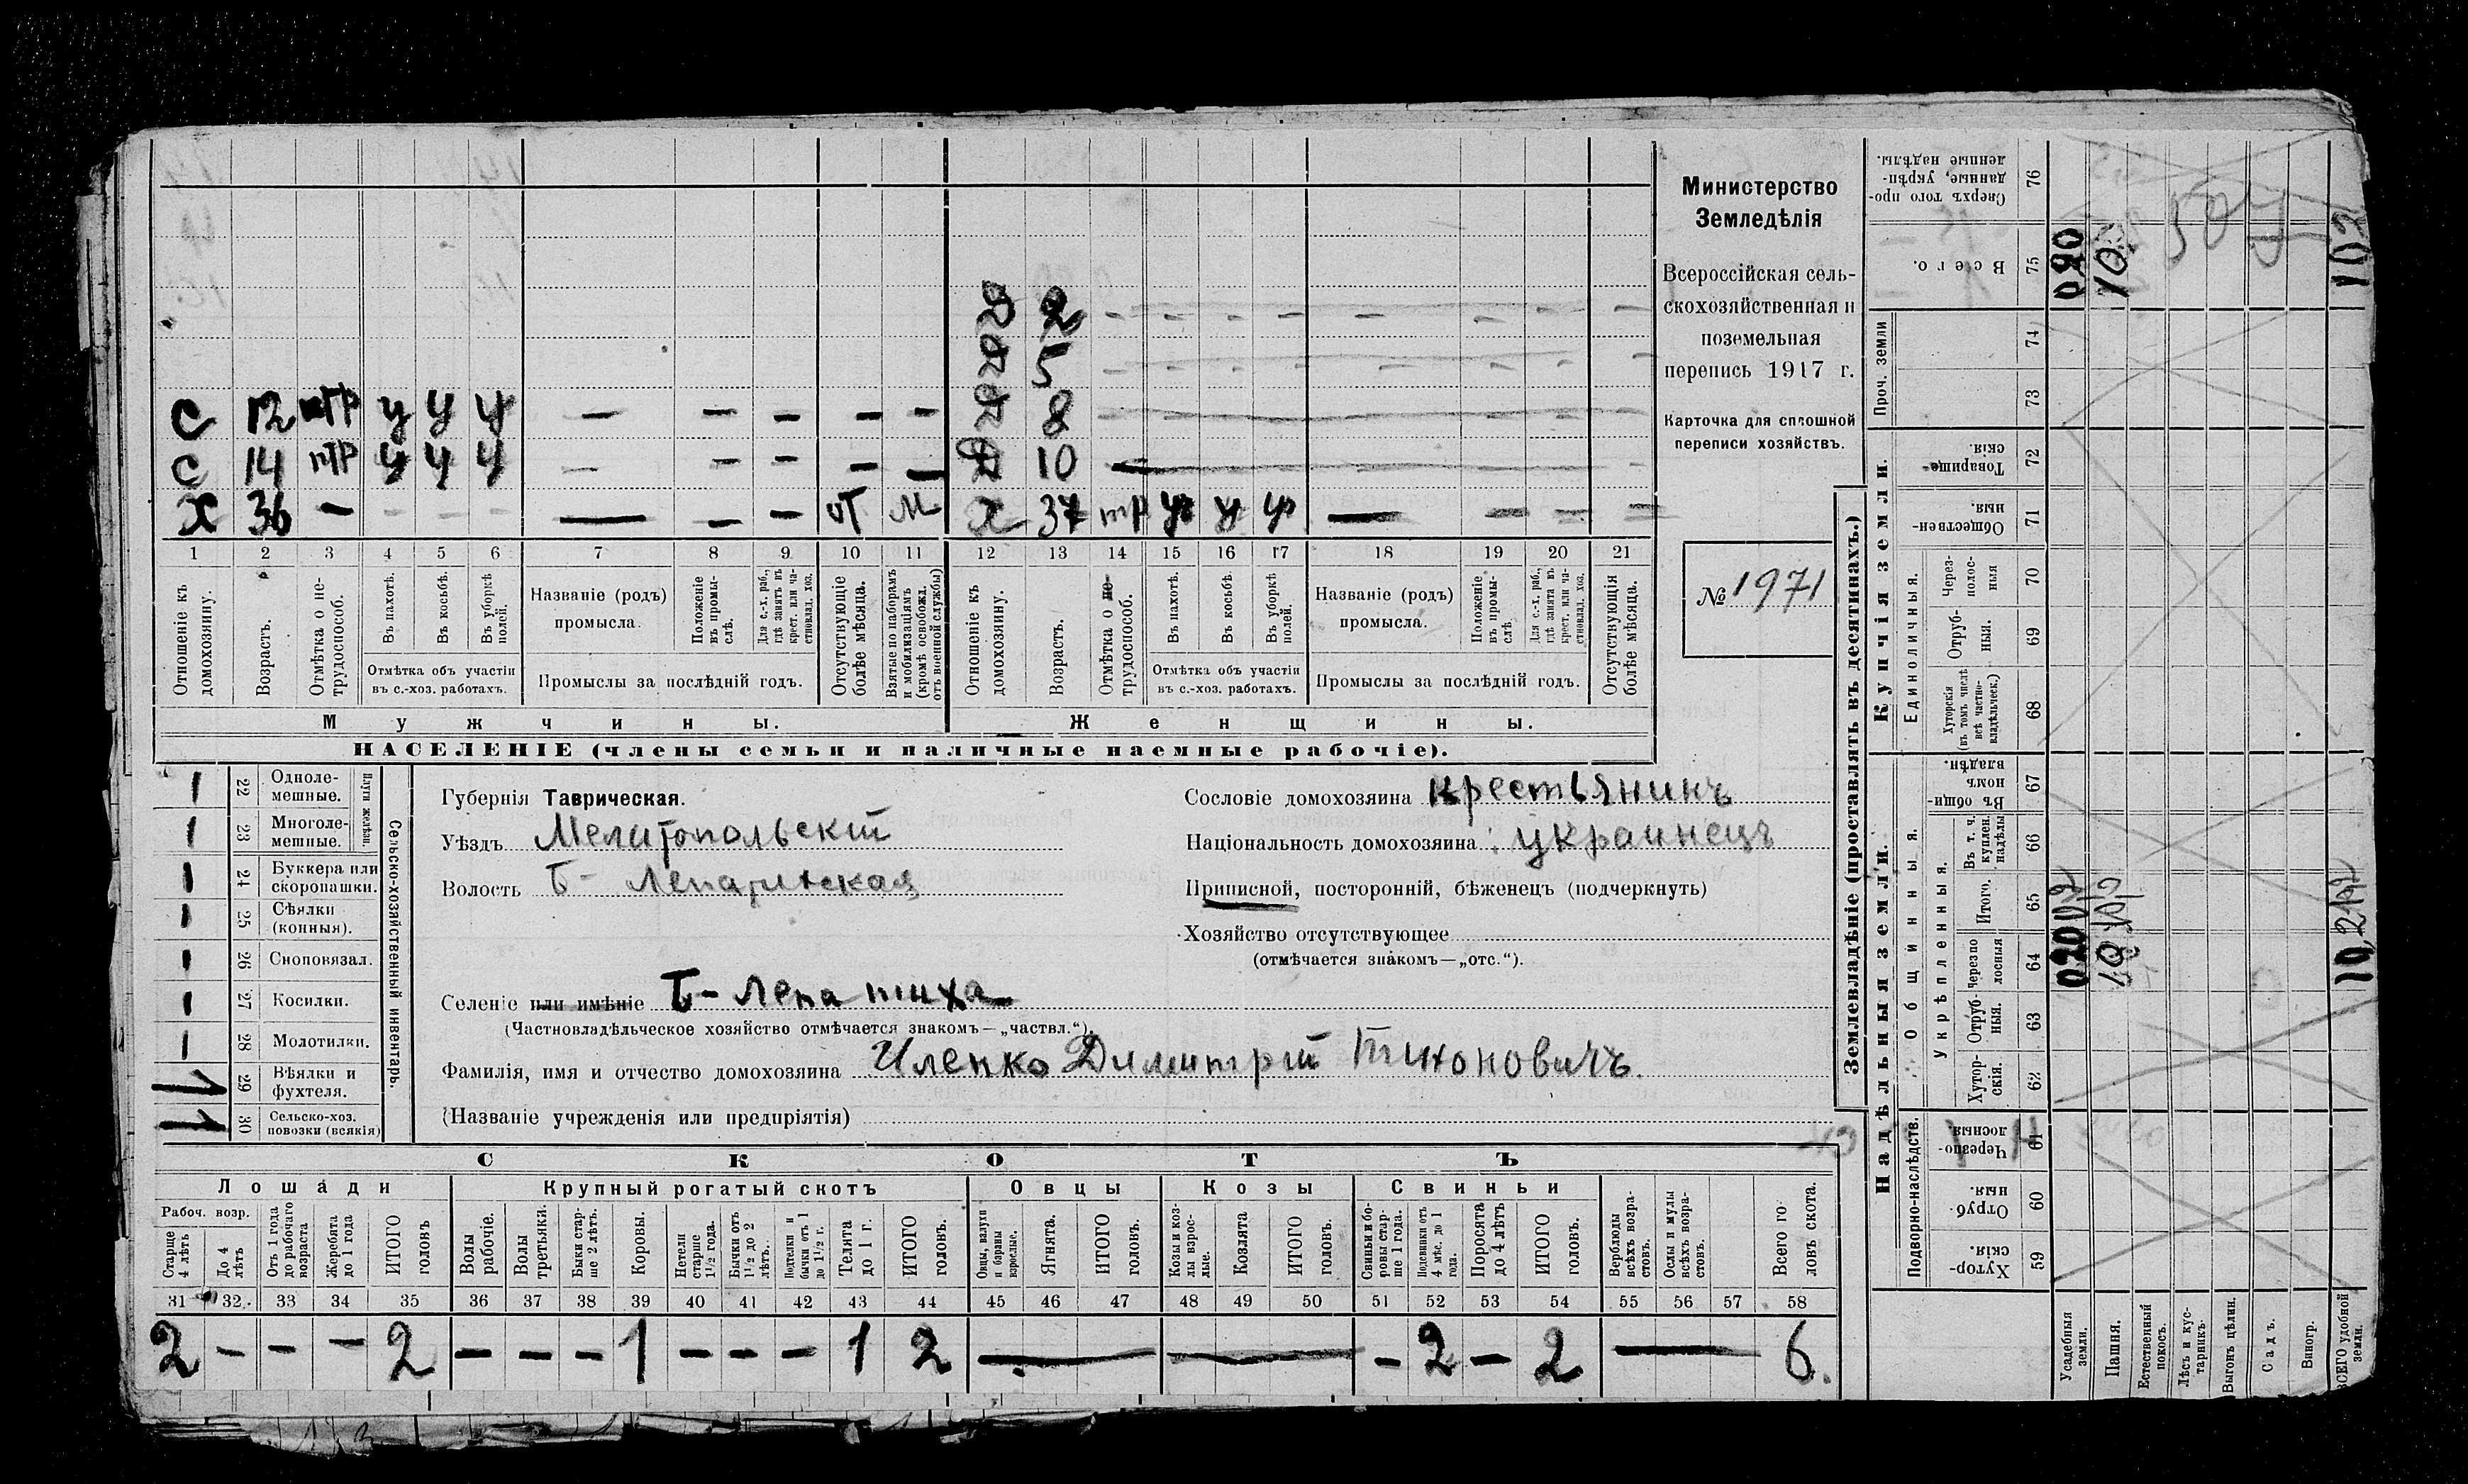 С 12 нтр у у у — — — — —
С 14 нтр у у у — — — — —
Х 36 — - - - — — — от м
Д 2 - - - - - - - -
Д 5 - - - - - - - -
Д 8
Д 10 —
Х 37 тр у у у — — — —
1 2 3 4 5 6 7 8 9 10 11 12 13 14 15 16 17 18 19 20 21
Отношеніе къ домохозяину.
Возрастъ.
Отмѣтка о не-трудоспособ.
Въ пахотѣ.
Въ косьбѣ.
Въ уборкѣ полей.
Отмѣтка объ участіи
въ с.-хоз. работахъ.
Названіе (родъ)
промысла.
Положеніе въ промы-слѣ.
Для с.-х. раб., гдѣ занятъ въ крест. или ча-стновлад. хоз.
Промыслы за послѣдній годъ.
Отсутствующіе болѣе мѣсяца.
Взятые по наборамъ и мобилизаціямъ (кромѣ освобожд. отъ военной службы)
Отношеніе къ домохозяину.
Возрастъ.
Отмѣтка о не-трудоспособ.
Въ пахотѣ.
Въ косьбѣ.
Въ уборкѣ полей.
Отмѣтка объ участіи
въ с.-хоз. работахъ.
Названіе (родъ)
промысла.
Положеніе въ промы-слѣ
Для с.-х. раб., гдѣ занята въ крест. или ча-стновлад. хоз.
Промыслы за послѣдній годъ.
Отсутствующія болѣе мѣсяца.
Мужчины.
Женщины.
НАСЕЛЕНІЕ (члены семьи и наличные наемные рабочіе).
Министерство
Земледѣлія
Всероссійская сель-
скохозяйственная и
поземельная
перепись 1917 г.
Карточка для сплошной
переписи хозяйствъ.
№ 1971
1 22 Одноле-мешные.
1 23 Многоле-мешные.
Плуги желѣзн.
1 24 Буккера или скоропашки.
1 25 Сѣялки (конныя).
1 26 Сноповязал.
1 27 Косилки.
1 28 Молотилки.
1 29 Вѣялки и фухтеля.
11 30 Сельско-хоз. повозки (всякія)
Сельско-хозяйственный инвентарь.
Губернія Таврическая.
Уѣздъ Мелитопольскій
Волость Б- Лепатихская
Селеніе или имѣніе Б- Лепатиха
(Частновладѣльческое хозяйство отмѣчается знакомъ—„частвл.“).
Фамилія, имя и отчество домохозяина Иленко Димитрій Тихоновичъ.
(Названіе учрежденія или предпріятія)
Сословіе домохозяина крестьянинъ
Національность домохозяина: украинецъ
Приписной, посторонній, бѣженецъ (подчеркнуть)
Хозяйство отсутствующее
(отмѣчается знакомъ—„отс.“).
СКОТЪ
Лошади
Крупный рогатый скотъ
Овцы
Козы
Свиньи
Рабоч. возр.
Старше 4 лѣтъ
До 4 лѣтъ
Отъ 1 года до рабочаго возраста
Жеребята до 1 года
ИТОГО головъ
Волы рабочіе.
Волы третьяки.
Быки стар-ше 2 лѣтъ.
Коровы.
Нетели старше 1½ года.
Бычки отъ 1½ до 2 лѣтъ.
Подтелки и бычки отъ 1 до 1½ г.
Телята до 1 г.
ИТОГО головъ.
Овцы, валухи и бараны взрослые.
Ягнята.
ИТОГО головъ.
Козы и коз-лы взрос-лые.
Козлята
ИТОГО головъ.
Свиньи и бо-ровы стар-ше 1 года.
Подсвинки отъ 4 мѣс. до 1 года.
Поросята до 4 лѣтъ
ИТОГО головъ.
Верблюды всѣхъ возра-стовъ.
Ослы и мулы всѣхъ возра-стовъ.
Всего го-ловъ скота.
31 32 33 34 35 36 37 38 39 40 41 42 43 44 45 46 47 48 49 50 51 52 53 54 55 56 57 58
2 — — — 2 — — — 1 — — — 1 2 — — — 2 — 2 — 6.
Землевладѣніе (проставлять въ десятинахъ.)
Надѣльныя земли.
Купчія земли.
Проч. земли
Сверхъ того про-данные, укрѣп-ленные надѣлы.
76
Всего.
75
74
73
Товарище-скія.
72
Обществен-ныя.
71
Единоличныя.
Через-полос-ныя
70
Отруб-ныя.
69
Хуторскія (въ томъ числѣ всѣ частно-владѣльческ.)
68
Въ общи-номъ владѣн.
67
Общинныя.
Укрѣпленныя.
Въ т. ч. куплен. надѣлы
66
Итого.
65
Черезпо-лосныя
64
Отруб-ныя.
63
Хутор-скія.
62
Подворно-наслѣдств.
Черезпо-лосныя.
61
Отруб-ныя.
60
Хутор-скія.
59
Усадебныя земли.
Пашня.
Естественный покосъ.
Лѣсъ и кус-тарникъ.
Выгонъ цѣлин.
Садъ.
Виногр.
ВСЕГО удобной земли.
020
102